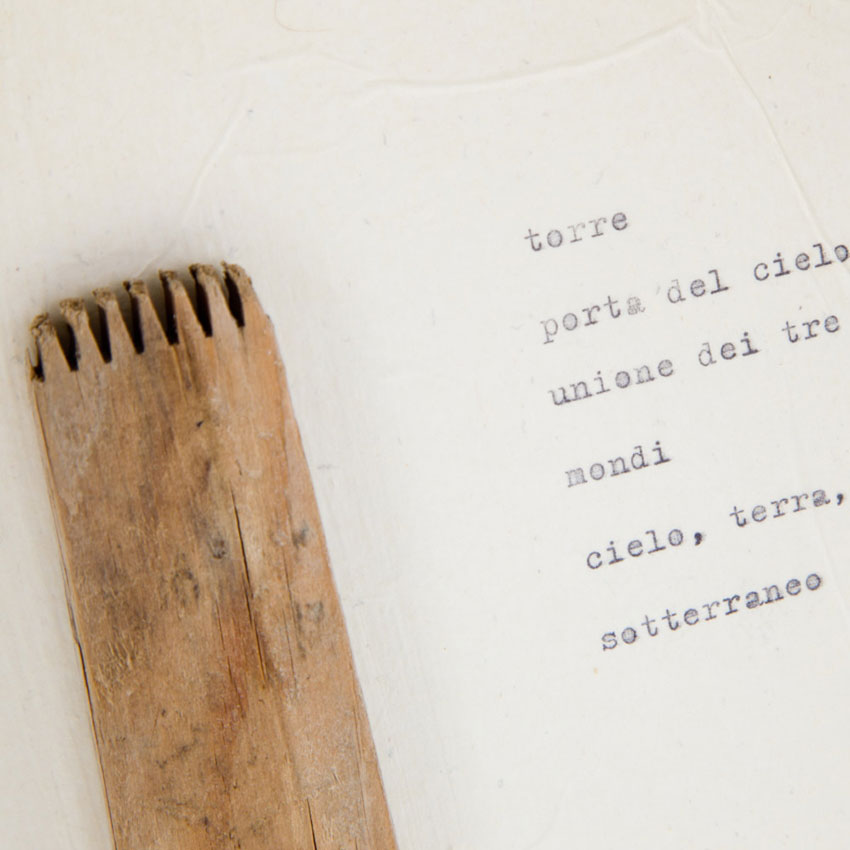 torre
porta del cielo
unione dei tre
mondi
cielo, terra,
sotterraneo